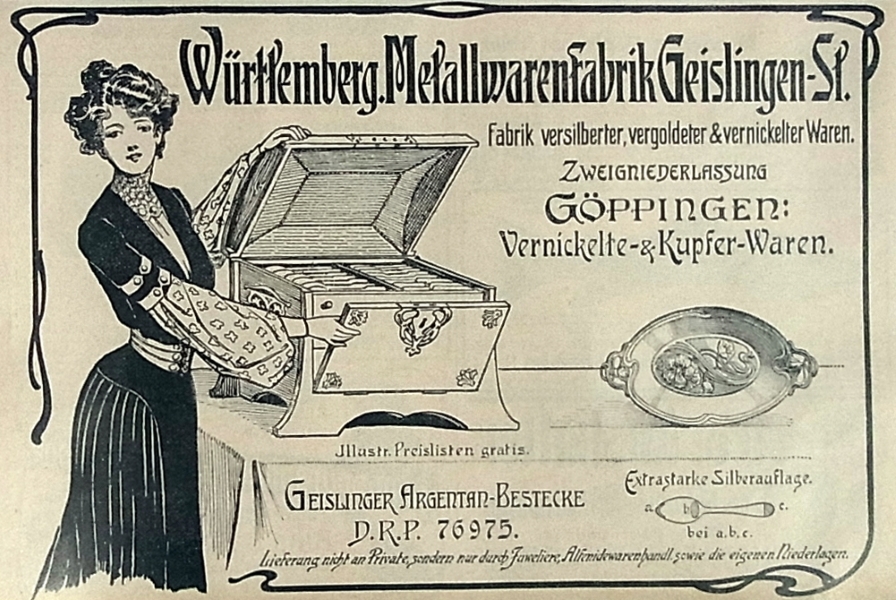 Württemberg. Metallwarenfabrik Geislingen-St.
Fabrik versilberter, vergoldeter & vernickelter Waren.
Zweigniederlassung
Göppingen:
Vernickelte- & Kupfer-Waren.
Jllustr. Preislisten gratis.
Geislinger Argentan-Bestecke
D.R.P. 76975.
Extrastarke Silberauflage.
a. b c.
bei a. b. c.
Lieferung nicht an Private, sondern nur durch Juweliere, Alfenidewarenhandl. sowie die eigenen Niederlagen.